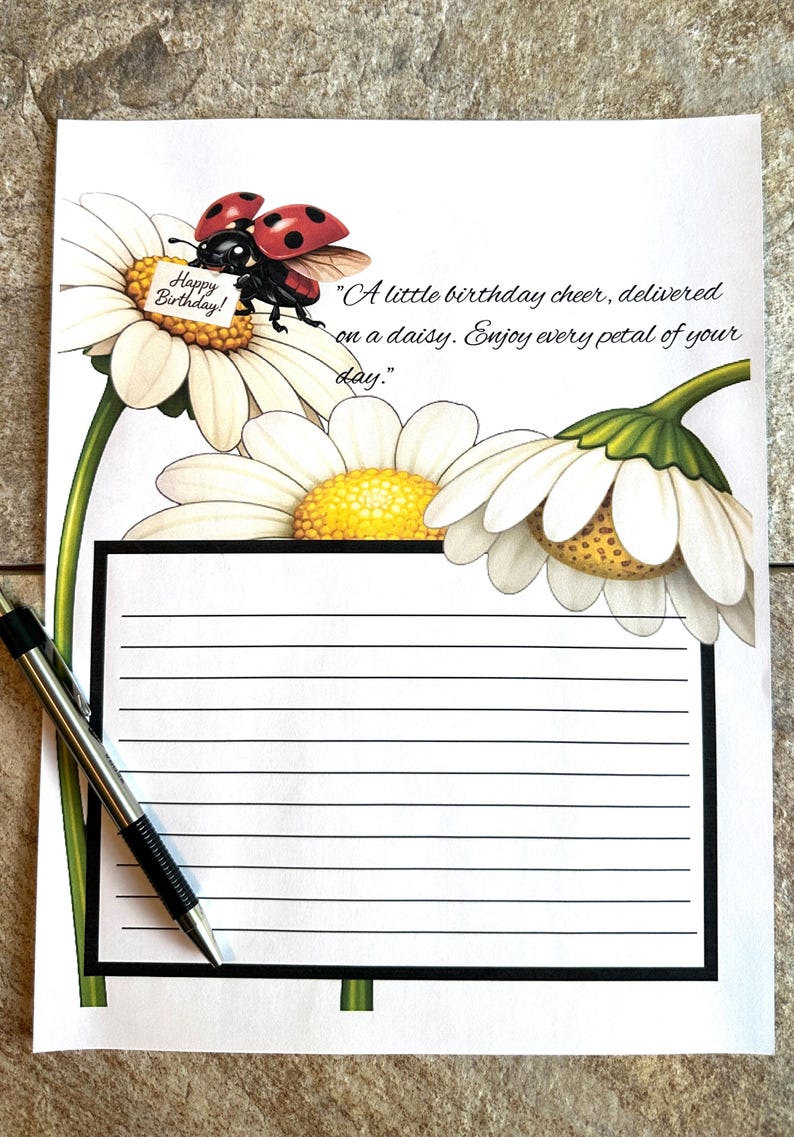 Happy
Birthday!
"A little birthday cheer, delivered
on a daisy. Enjoy every petal of your
day."